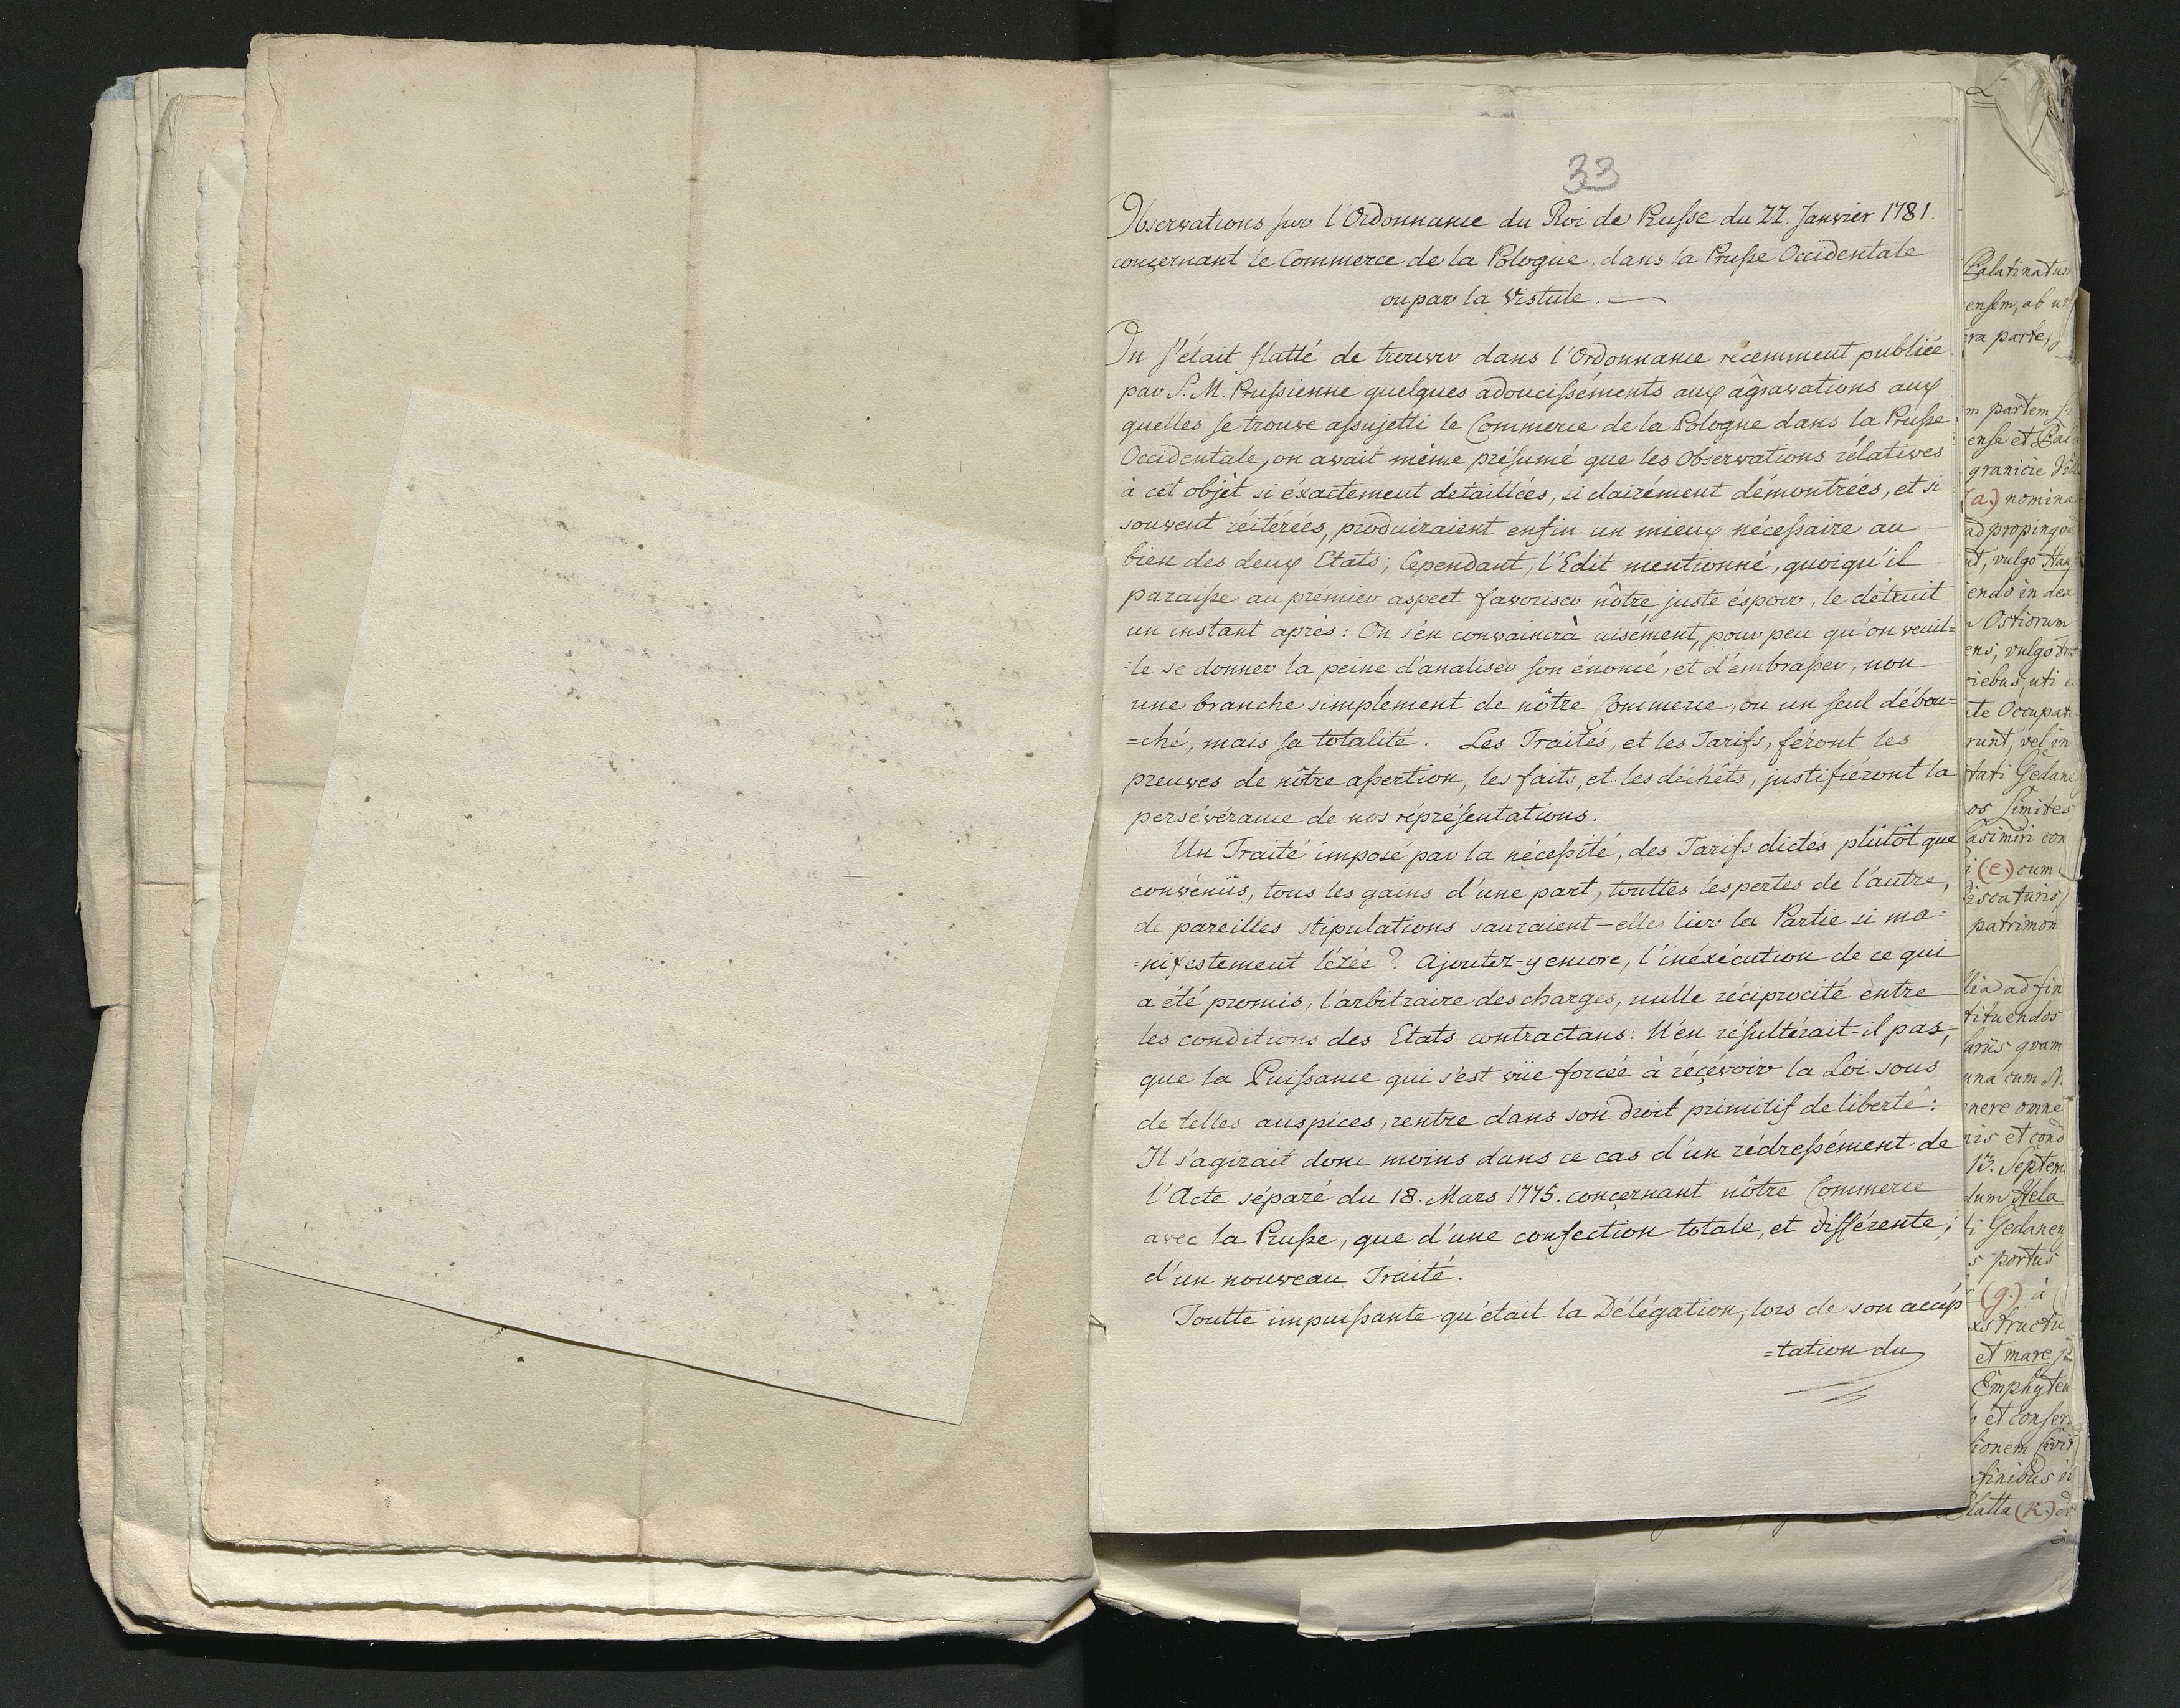 33
Observations sur l'Ordonnance du Roi de Prusse du 22. Janvier 1781.
conçernant le Commerce de la Pologne dans la Prusse Occidentale
ou par la Vistule.
On s'était flatté de trouver dans l'Ordonnance récemment publiée
par S. M. Prussienne quelques adoucisséments aux âgravations aux
quelles se trouve assujetti le Commerce de la Pologne dans la Prusse
Occidentale, on avait même présumé que les Observations rélatives
à cet objèt si éxactement detaillées, si clairément démontrées, et si
souvent réitérées, produiraient enfin un mieux nécessaire au
bien des deux Etats; Cependant, l'Edit mentionné, quoiqu'il
paraisse au premier aspect favoriser nôtre juste éspoir, le détruit
un instant après: On s'en convaincrà aisément, pour peu qu'on veuil=
=le se donner la peine d'analiser son énoncé, et d'embrasser, non
une branche simplement de nôtre Commerce, ou un seul débou=
=ché, mais sa totalité. Les Traités, et les Tarifs, féront les
preuves de nôtre assertion, les faits, et les déchêts, justifiéront la
persévérance de nos réprésentations.
Un Traité imposé par la nécessité, des Tarifs dictés plûtôt que
convénüs, tous les gains d'une part, touttes les pertes de l'autre,
de pareilles stipulations sauraient-elles lier la Partie si ma=
=nifestement lézée? Ajoutez-y encore, l'inéxécution de ce qui
a été promis, l'arbitraire des charges, nulle réciprocité entre
les conditions des Etats contractans: N'en résultérait-il pas,
que la Puissance qui s'est vüe forcée à réçévoir la Loi sous
de telles auspices, rentre dans son droit primitif de liberté:
Il s'agirait donc moins dans ce cas d'un rédressément de
l'Acte séparé du 18. Mars 1775. conçernant nôtre Commerce
avec la Prusse, que d'une confection totale, et différente;
d'un nouveau Traité.
Toutte impuissante qu'était la Délégation, lors de son accép
=tation du
Palatinatum
ensem, ab un
ra parte,
m partem
ense et Pala
granicie
(a.) nomina
ad propinqva
ut, vulgo
endo in dex
Ostiorum
ens, vulgo
ciebus, uti
te Occupat
runt, vel in
tati Gedane
os Limites
Casimiri con
(e.) cum
iscaturis
patrimon
lea ad fin
tituendos
lariis qvam
una cum
nere omne
ris et cond
13. Septem
dum Hela
ti Gedanen
s portus
(g.) à
xstructu
et mare
Emphyteu
et conser
ionem
finibus
latta (k.)